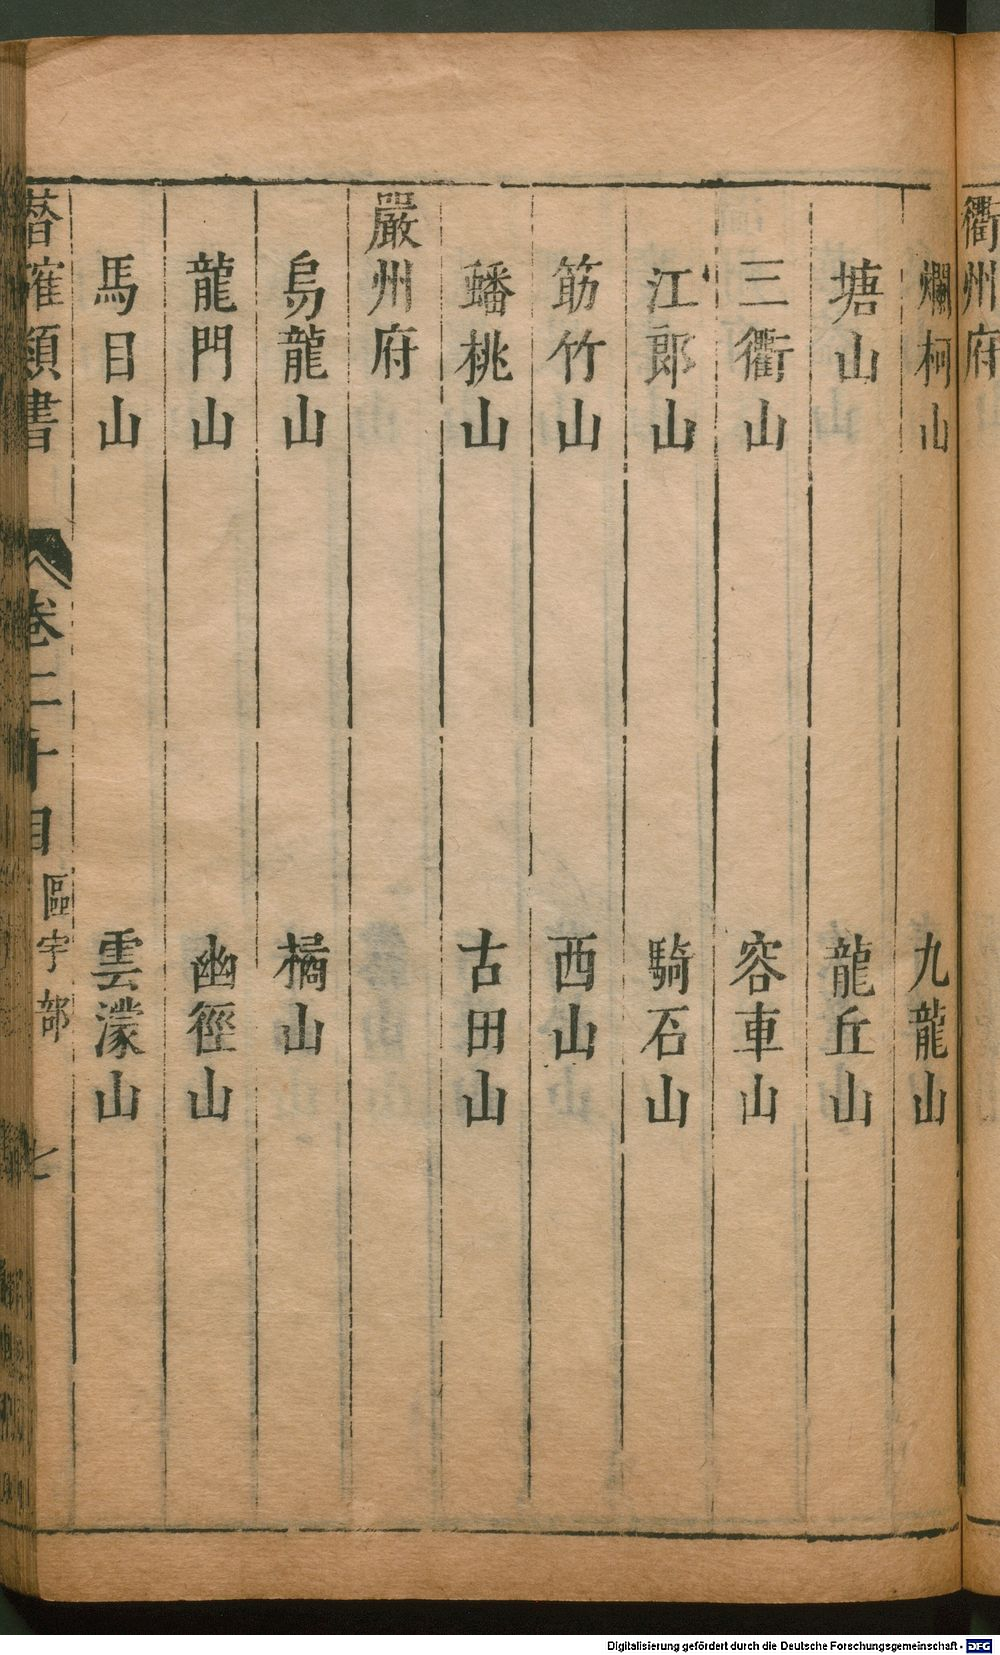 衢州府
爛柯山 九龍山
塘山 龍丘山
三衢山 容車山
江郎山 騎石山
筋竹山 西山
蟠桃山 古田山
嚴州府
烏龍山 橘山
龍門山 幽徑山
馬目山 雲濛山
類書 卷二十目 區宇部 七
Digitalisierung gefördert durch die Deutsche Forschungsgemeinschaft - DFG